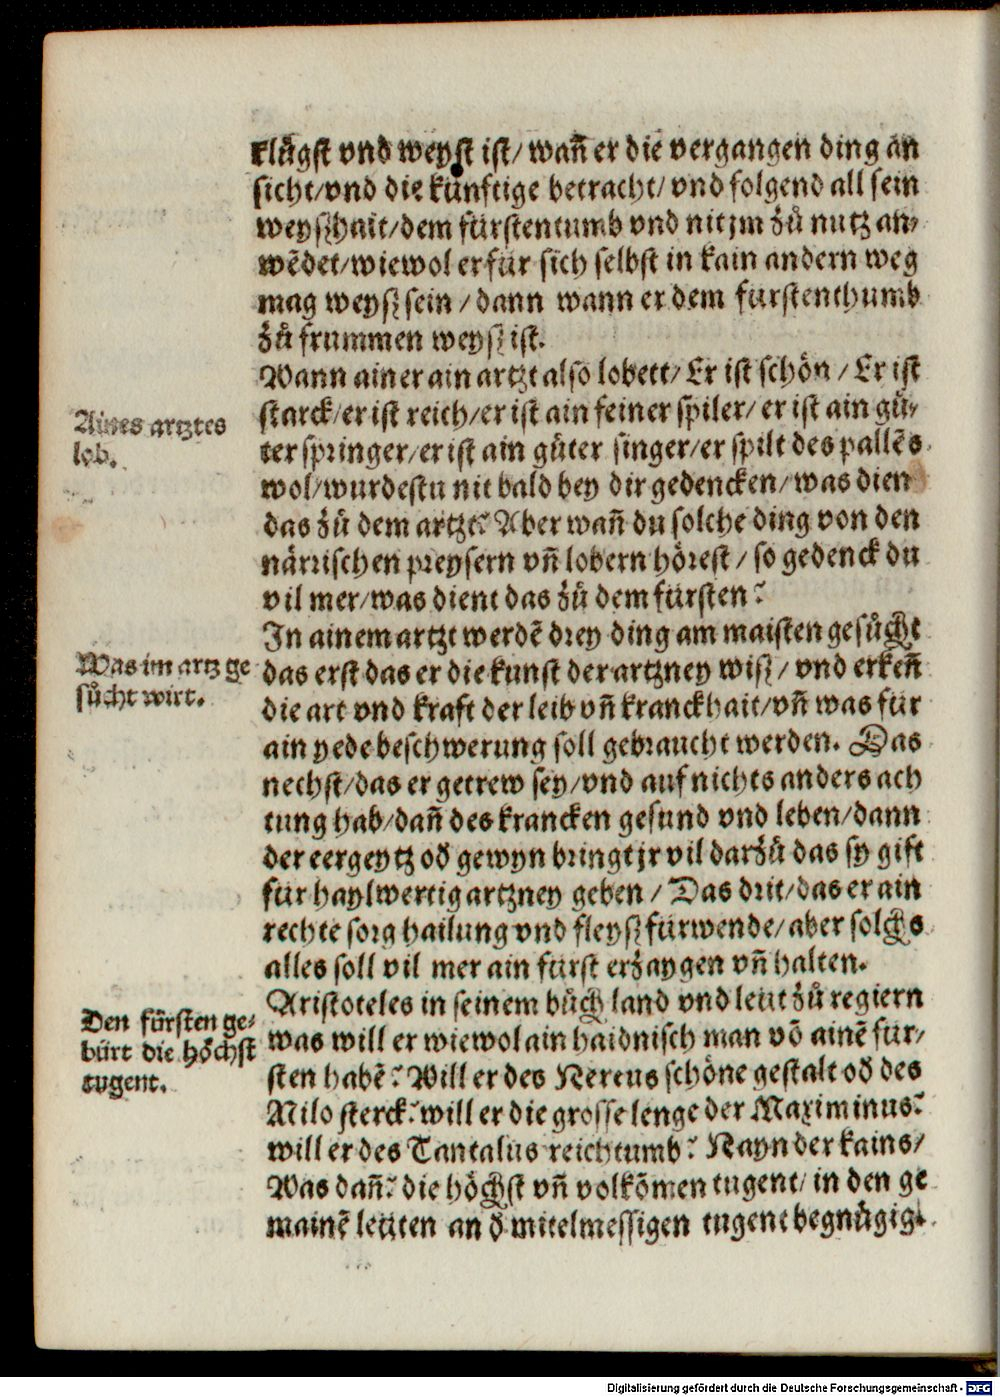 klůgst vnd weyst ist/ wañ er die vergangen ding an
sicht/vnd die künftige betracht/ vnd folgend all sein
weyszhait/dem fürstentumb vnd nit jm zů nutz an⸗
wēdet/wiewol er für sich selbst in kain andern weg
mag weysz sein / dann wann er dem fürstenthumb
zů frummen weysz ist.
Wann ainer ain artzt also lobett/ Er ist schön / Er ist
starck/er ist reich/er ist ain feiner spiler/ er ist ain gů⸗
ter springer/er ist ain gůter singer/er spilt des pallēs
wol/wurdestu nit bald bey dir gedencken/ was dien
das zů dem artzt? Aber wañ du solche ding von den
närrischen preysern vñ lobern hörest / so gedenck du
vil mer/was dient das zů dem fürsten?
In ainem artzt werdē drey ding am maisten gesůcht
das erst das er die kunst der artzney wisz / vnd erkeñ
die art vnd kraft der leib vñ kranckhait/vñ was für
ain yede beschwerung soll gebraucht werden. Das
nechst/das er getrew sey/vnd auf nichts anders ach
tung hab/dañ des krancken gesund vnd leben/dann
der eergeytz oď gewyn bringt jr vil darzů das sy gift
für haylwertig artzney geben / Das drit/das er ain
rechte sorg hailung vnd fleysz fürwende/aber solchs
alles soll vil mer ain fürst erzaygen vñ halten.
Aristoteles in seinem bůch land vnd leüt zů regiern
was will er wiewol ain haidnisch man vō ainē für⸗
sten habē? Will er des Nereus schöne gestalt oď des
Milo sterck? will er die grosse lenge der Maximinus?
will er des Tantalus reichtumb? Nayn der kains/
Was dañ? die höchst vñ volkōmen tugent/ in den ge
mainē leüten an ď mitelmessigen tugent begnůgig.
Aines artztes
lob.
Was im artz ge
sůcht wirt.
Den fürsten ge⸗
bürt die höchst
tugent.
Digitalisierung gefördert durch die Deutsche Forschungsgemeinschaft - DFG